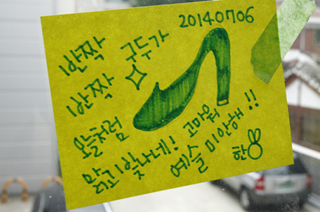 20140706
반짝 구두가
반짝
오늘처럼
맑고 빛나네! 고마워
예슬 미안해!!
한